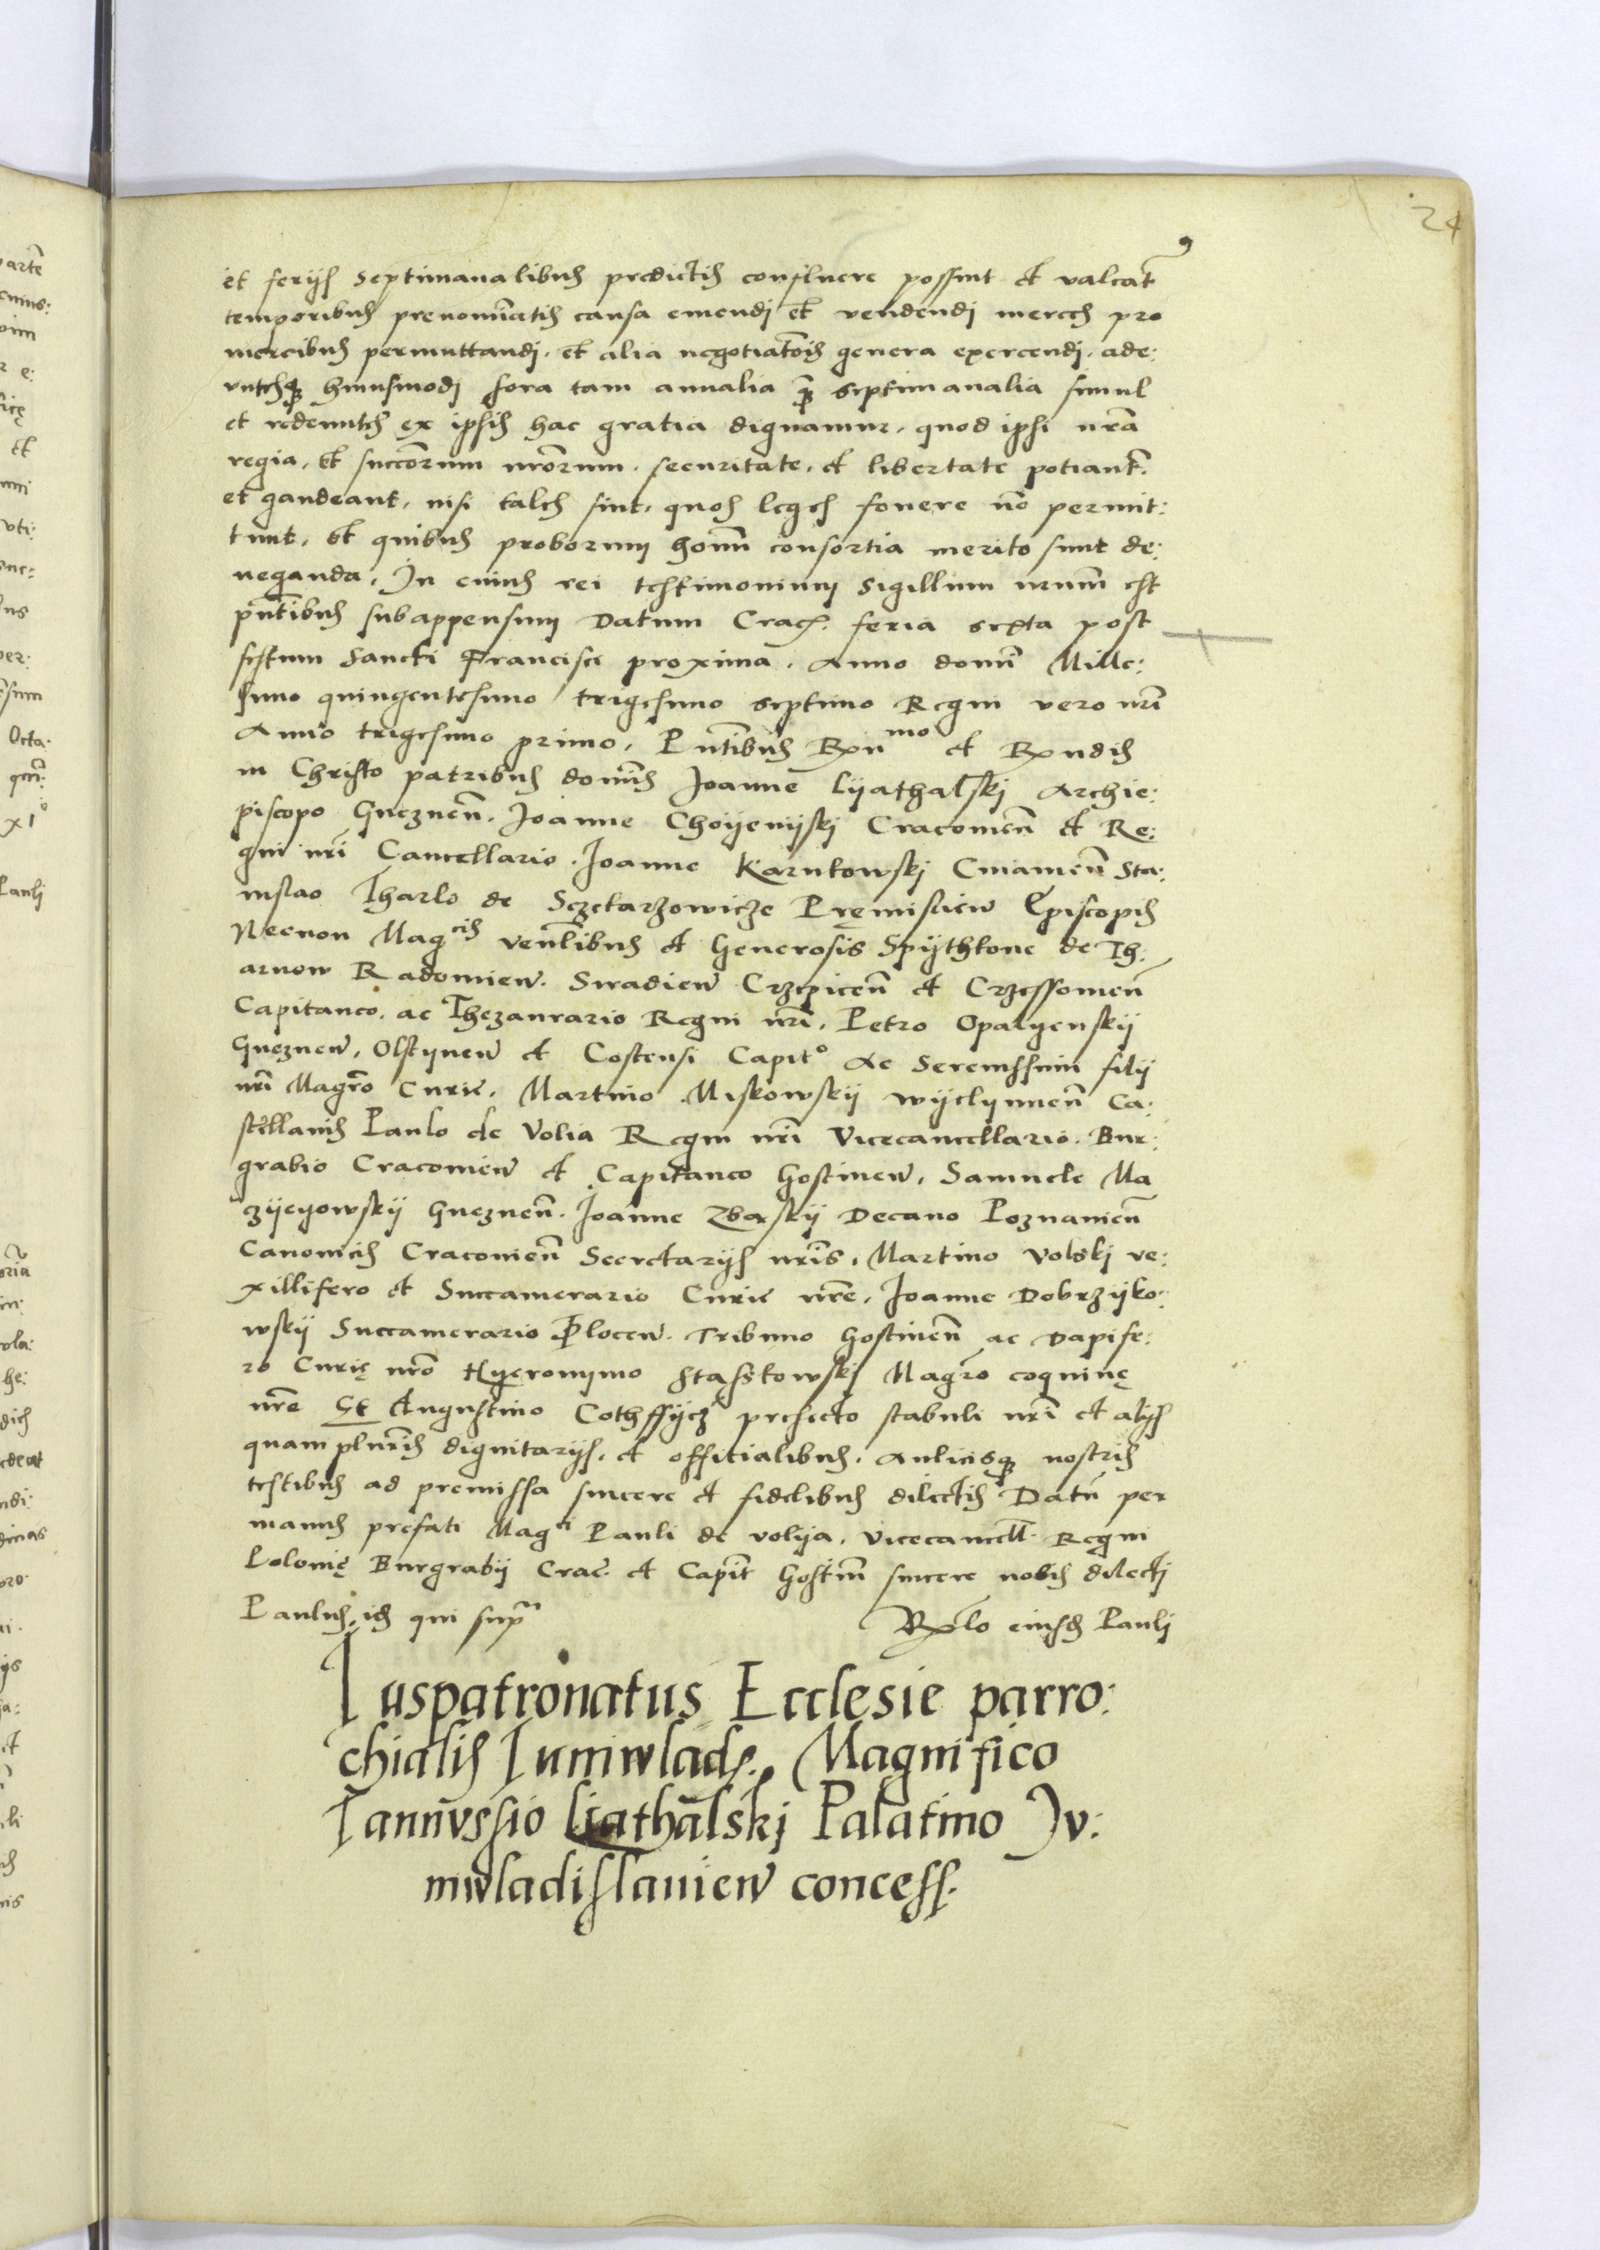 24
9
et ferijs septimanalibus predictis confluere possint et valeāt
temporibus prenomīatis causa emendj et vendendj merces pro
mercibus permuttandj. et alia negotiatōis genera exercendj. ade:
untesq̨ hmusmodj fora tam annalia q̄ septimanalia simul
et redeuntes ex ipsis hac gratia dignamur, quod ipsi nrā
regia, et succōrum nrōrum. securitate, et libertate potiant̄
et gaudeant, nisi tales sint, quos leges fovere nō permit:
tunt, et quibus proborum hom̄ consortia merito sunt de:
neganda, In cuius rei testimonium Sigillum nrum̄ est
pn̄tibus subappensum Datum Crac. feria sexta post
festum Sancti Francisci proxima. Anno domī Mille:
simo quingentesimo trigesimo septimo Regni vero nrī
Anno trigesimo primo, Pn̄tibus Rxnmo et Rxndis
in Christo patribus domīs Joanne Lyathalskj Archie:
piscopo Gneznen̄. Joanne Choyenyskj Cracouien̄ et Re:
gni nrī Cancellario. Joanne Karnkowskj Cuiauien̄ Sta:
nislao Tharlo de Sczekarzowicze Pręmislien̄ Episcopis
Necnon Magcis ven̄libus et Generosis Spythkone de Th:
arnow Radomien̄. Siradien̄ Crzepicen̄ et Crzessouien̄
Capitaneo, ac Thezaurario Regni nrī, Petro Opalyenskÿ
Gnęznen̄, Olstynen̄ et Costensi Capito Ac Serenissimi filij
nrī Magrō Curie, Martino Miskowskÿ Wyelynnen̄ Ca:
stellanis Paulo de Volia Regni nrī Vicecancellario. Bur:
grabio Cracouien̄ et Capitaneo Gostinen̄, Samuele Ma
zyeyowskÿ Gneznen̄. Joanne Zbaskÿ Decano Poznanien̄
Canonicis Cracouien̄ Secretarijs nrīs, Martino Volskj ve:
xillifero et Succamerario Curie nrē, Joanne Dobrzyko:
wskÿ Succamerario Plocen̄. Tribuno Gostinen̄ ac Dapife:
ro Curię nrō Hyeronymo Staskowskj Magrō coquinę
nrē Et Augustino Cothffycz prefecto stabuli nrī et alijs
quamplurīs dignitarijs, et officialibus, Aulicisq̨ nostris
testibus ad premissa sincere et fidelibus dilectis Datū per
manus prefati Magci Pauli de volya, vicecancell. Regni
Polonię Burgrabij Crac. et Capit̄ Gostin̄ sincere nobis dilectj
Paulus, is qui supra
Rxlo eiusd Paulj
Juspatronatus Ecclesie parro:
chialis Juniwlads. Magnifico
Jannussio liathalskj Palatino Ju:
niwladislauien̄ concess.